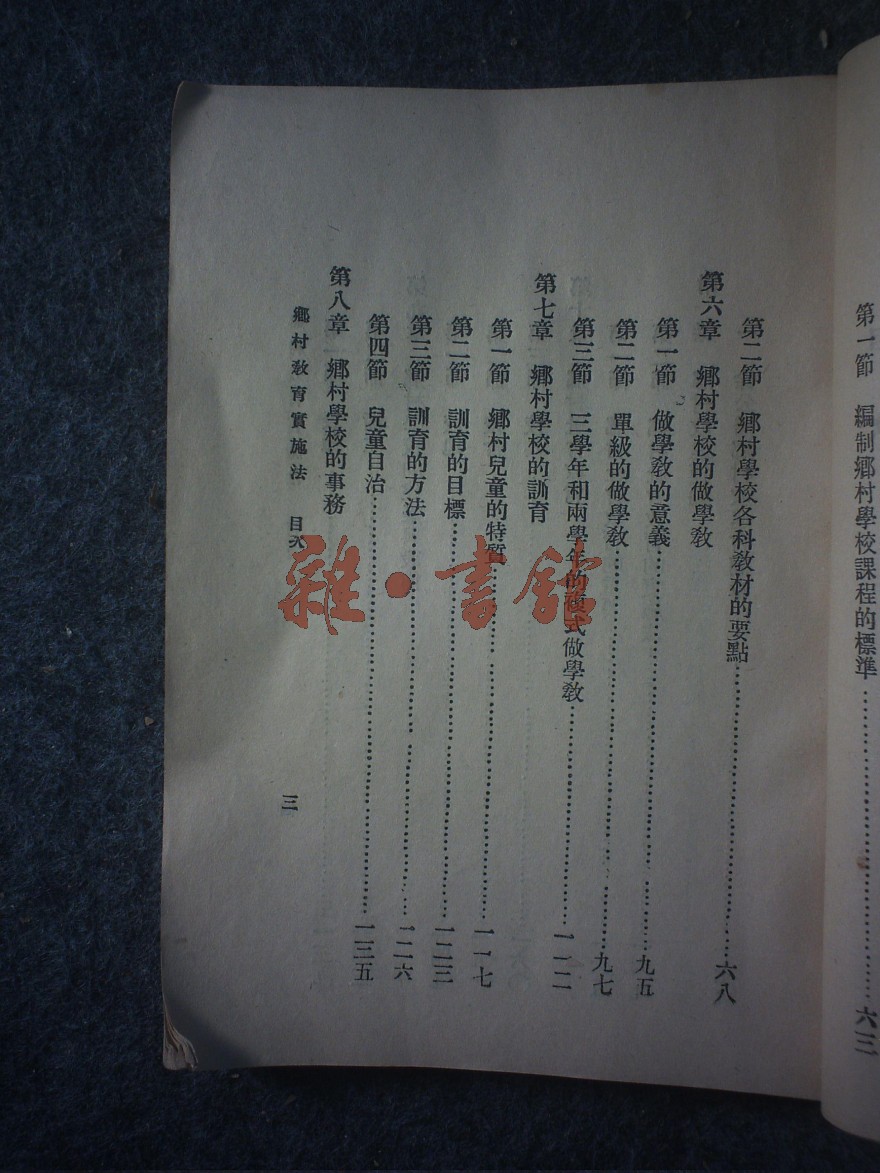 第一節　編制鄉村學校課程的標準……六三
第二節　鄉村學校各科教材的要點……六八
第六章　鄉村學校的做學教
第一節　做學教的意義……九五
第二節　單級的做學教……九七
第三節　三學年和兩學年的複式做學教……一一二
第七章　鄉村學校的訓育
第一節　鄉村兒童的特質……一一七
第二節　訓育的目標……一二三
第三節　訓育的方法……一二六
第四節　兒童自治……一三五
第八章　鄉村學校的事務
鄉村教育實施法　目次
三
雜·書館